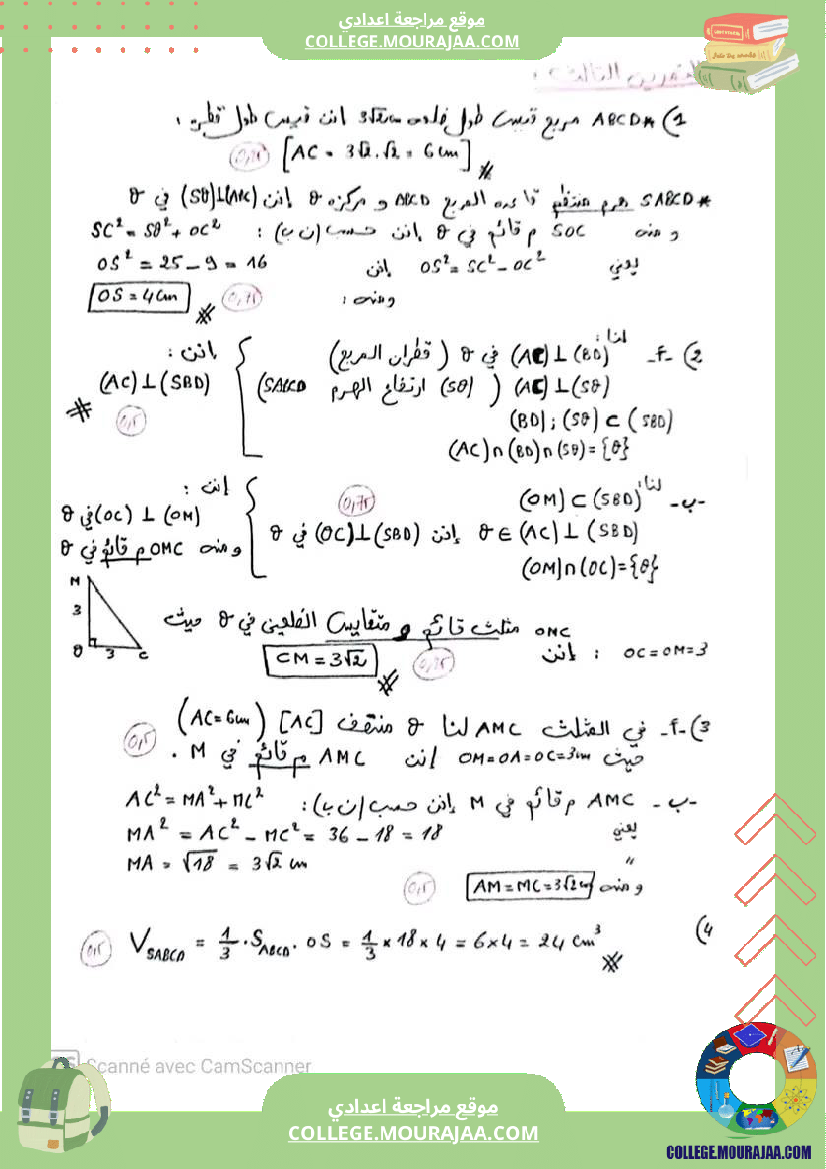 موقع مراجعة اعدادي
COLLEGE.MOURAJAA.COM
التمرين الثالث :
1) * ABCD مربع قيس طول ضلعه 3√2 cm اذن قيس طول قطره :
[AC = 3√2.√2 = 6 cm] 0,25
* SABCD هرم منتظم قاعدته المربع ABCD و مركزه θ إذن (Sθ)⊥(ABC) في θ
و منه SOC م قائم في θ إذن حسب (ن ب) : SC² = Sθ² + OC²
يعني OS² = SC² - OC² إذن OS² = 25 - 9 = 16
ومنه : OS = 4 cm 0,75
2) -أ- لنا : (AC) ⊥ (BD) في θ (قطران المربع) إذن :
(AC) ⊥ (Sθ) ( [Sθ] ارتفاع الهرم SABCD) (AC) ⊥ (SBD)
(BD) ; (Sθ) ⊂ (SBD) 0,5
(AC)∩(BD)∩(Sθ) = {θ}
-ب- لنا : (OM) ⊂ (SBD) 0,75 إذن :
θ ∈ (AC) ⊥ (SBD) إذن (OC)⊥(SBD) في θ (OM) ⊥ (OC) في θ
(OM)∩(OC) = {θ} ومنه OMC م قائم في θ
M 3 θ 3 C
OMC مثلث قائم و متقايس الضلعين في θ حيث
OC = OM = 3 إذن : CM = 3√2 0,25
3) -أ- في المثلث AMC لنا θ منتصف [AC] (AC = 6 cm)
حيث OM = OA = OC = 3 cm إذن AMC م قائم في M . 0,5
-ب- AMC م قائم في M إذن حسب (ن ب) : AC² = MA² + MC²
يعني MA² = AC² - MC² = 36 - 18 = 18
" MA = √18 = 3√2 cm
ومنه AM = MC = 3√2 cm 0,5
4) V SABCD = 1/3 . S ABCD . OS = 1/3 × 18 × 4 = 6 × 4 = 24 cm³ 0,5
Scanné avec CamScanner
موقع مراجعة اعدادي
COLLEGE.MOURAJAA.COM
COLLEGE.MOURAJAA.COM